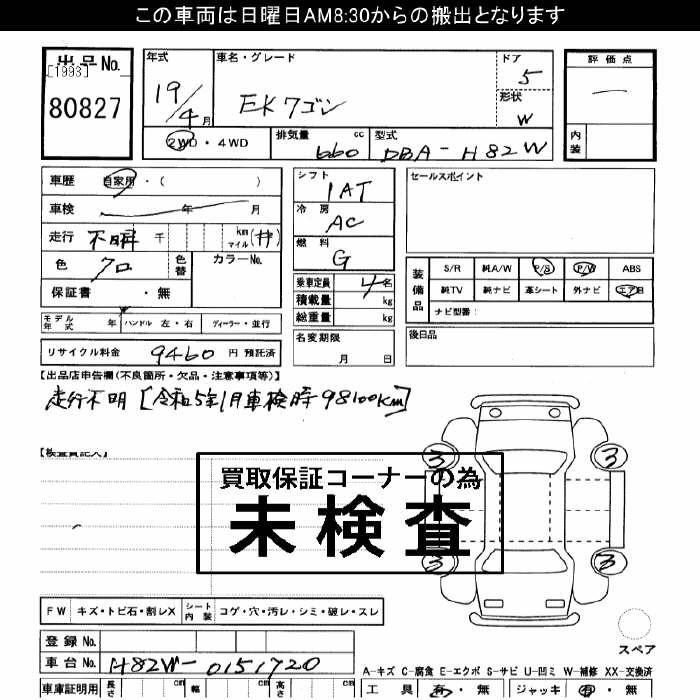 この車両は日曜日AM8:30からの搬出となります
出品No.
[1993]
80827
年式
19/4月
車名・グレード
EKワゴン
ドア
5
形状
W
評価点
―
内装
2WD・4WD
排気量 660 cc
型式 DBA-H82W
車歴 自家所・( )
車検 年 月
走行 不明 千 km マイル (井)
色 クロ 色替 カラーNo.
保証書 ・ 無
モデル年式 年 ハンドル 左・右 ディーラー・並行
リサイクル料金 9460 円 預託済
シフト
1AT
冷房
AC
燃料
G
乗車定員 4名
積載量 kg
総重量 kg
名変期限
月 日
セールスポイント
装備品
S/R 純A/W P/S P/W ABS
純TV 純ナビ 革シート 外ナビ エアB
ナビ型番:
後日品
【出品店申告欄(不良箇所・欠品・注意事項等)】
走行不明 [令和5年1月車検時98100km]
【検査員記入】
買取保証コーナーの為
未検査
3 3
3 3
スペア
FW キズ・トビ石・割レX シート内装 コゲ・穴・汚レ・シミ・破レ・スレ
登録No.
車台No. H82W-0151720
A-キズ C-腐食 E-エクボ S-サビ U-凹ミ W-補修 XX-交換済
車庫証明用 長さ cm 幅 cm 高さ cm
工具 有・無 ジャッキ 有・無